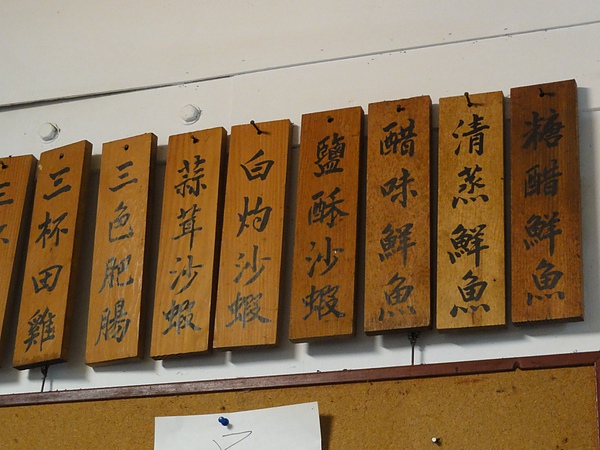 糖醋鮮魚
清蒸鮮魚
醋味鮮魚
鹽酥沙蝦
白灼沙蝦
蒜茸沙蝦
三色肥腸
三杯田雞
三杯